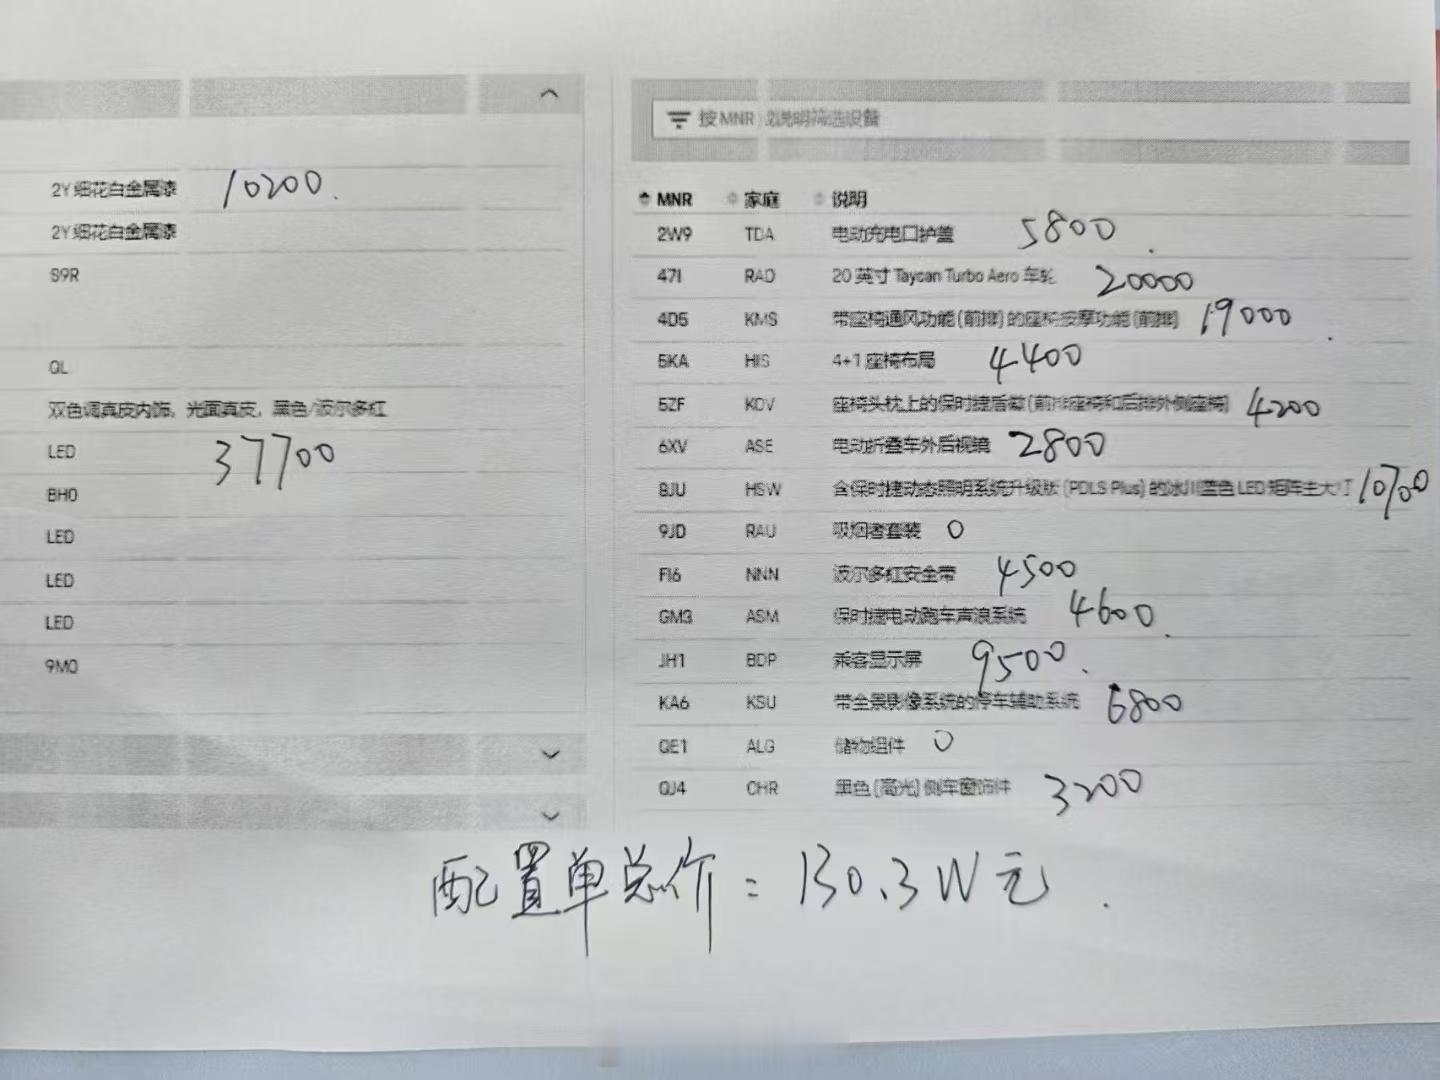 2Y 细花白金属漆 10200.
2Y 细花白金属漆
S9R
QL
双色调真皮内饰，光面真皮，黑色/波尔多红
LED 37700
8H0
LED
LED
LED
9M0
按 MNR 或说明筛选设备
MNR 家庭 说明
2W9 TDA 电动充电口护盖 5800.
47I RAD 20 英寸 Taycan Turbo Aero 车轮 20000
4D5 KMS 带座椅通风功能(前排)的座椅按摩功能(前排) 19000.
5KA HIS 4+1 座椅布局 4400
5ZF KOV 座椅头枕上的保时捷盾徽(前排座椅和后排外侧座椅) 4200
6XV ASE 电动折叠车外后视镜 2800
8JU HSW 含保时捷动态照明系统升级版 (PDLS Plus) 的冰川蓝色 LED 矩阵主大灯 10700
9JD RAU 吸烟者套装 0
FI6 NNN 波尔多红安全带 4500
GM3 ASM 保时捷电动跑车声浪系统 4600.
JH1 BDP 乘客显示屏 9500.
KA6 KSU 带全景影像系统的停车辅助系统 6800
QE1 ALG 储物组件 0
QJ4 CHR 黑色(高光)侧车窗饰件 3200
配置单总价 = 130.3W元.